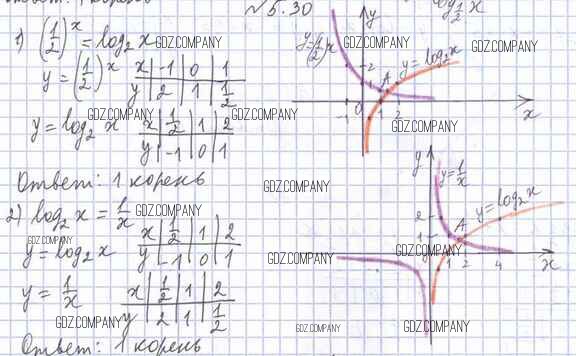 Ответ: 1 корень
№5.30
1) (1/2)^x = log₂x
y = (1/2)^x
x | -1 | 0 | 1
y | 2 | 1 | 1/2
y = log₂x
x | 1/2 | 1 | 2
y | -1 | 0 | 1
Ответ: 1 корень
2) log₂x = 1/x
y = log₂x
x | 1/2 | 1 | 2
y | -1 | 0 | 1
y = 1/x
x | 1/2 | 1 | 2
y | 2 | 1 | 1/2
Ответ: 1 корень
log 1/2 x
y
y=(1/2)^x
y=log₂x
A
2
1
-1 0 1 2
x
y
y=1/x
y=log₂x
A
2
1
1 2 4
x
GDZ.COMPANY
GDZ.COMPANY
GDZ.COMPANY
GDZ.COMPANY
GDZ.COMPANY
GDZ.COMPANY
GDZ.COMPANY
GDZ.COMPANY
GDZ.COMPANY
GDZ.COMPANY
GDZ.COMPANY
GDZ.COMPANY
GDZ.COMPANY